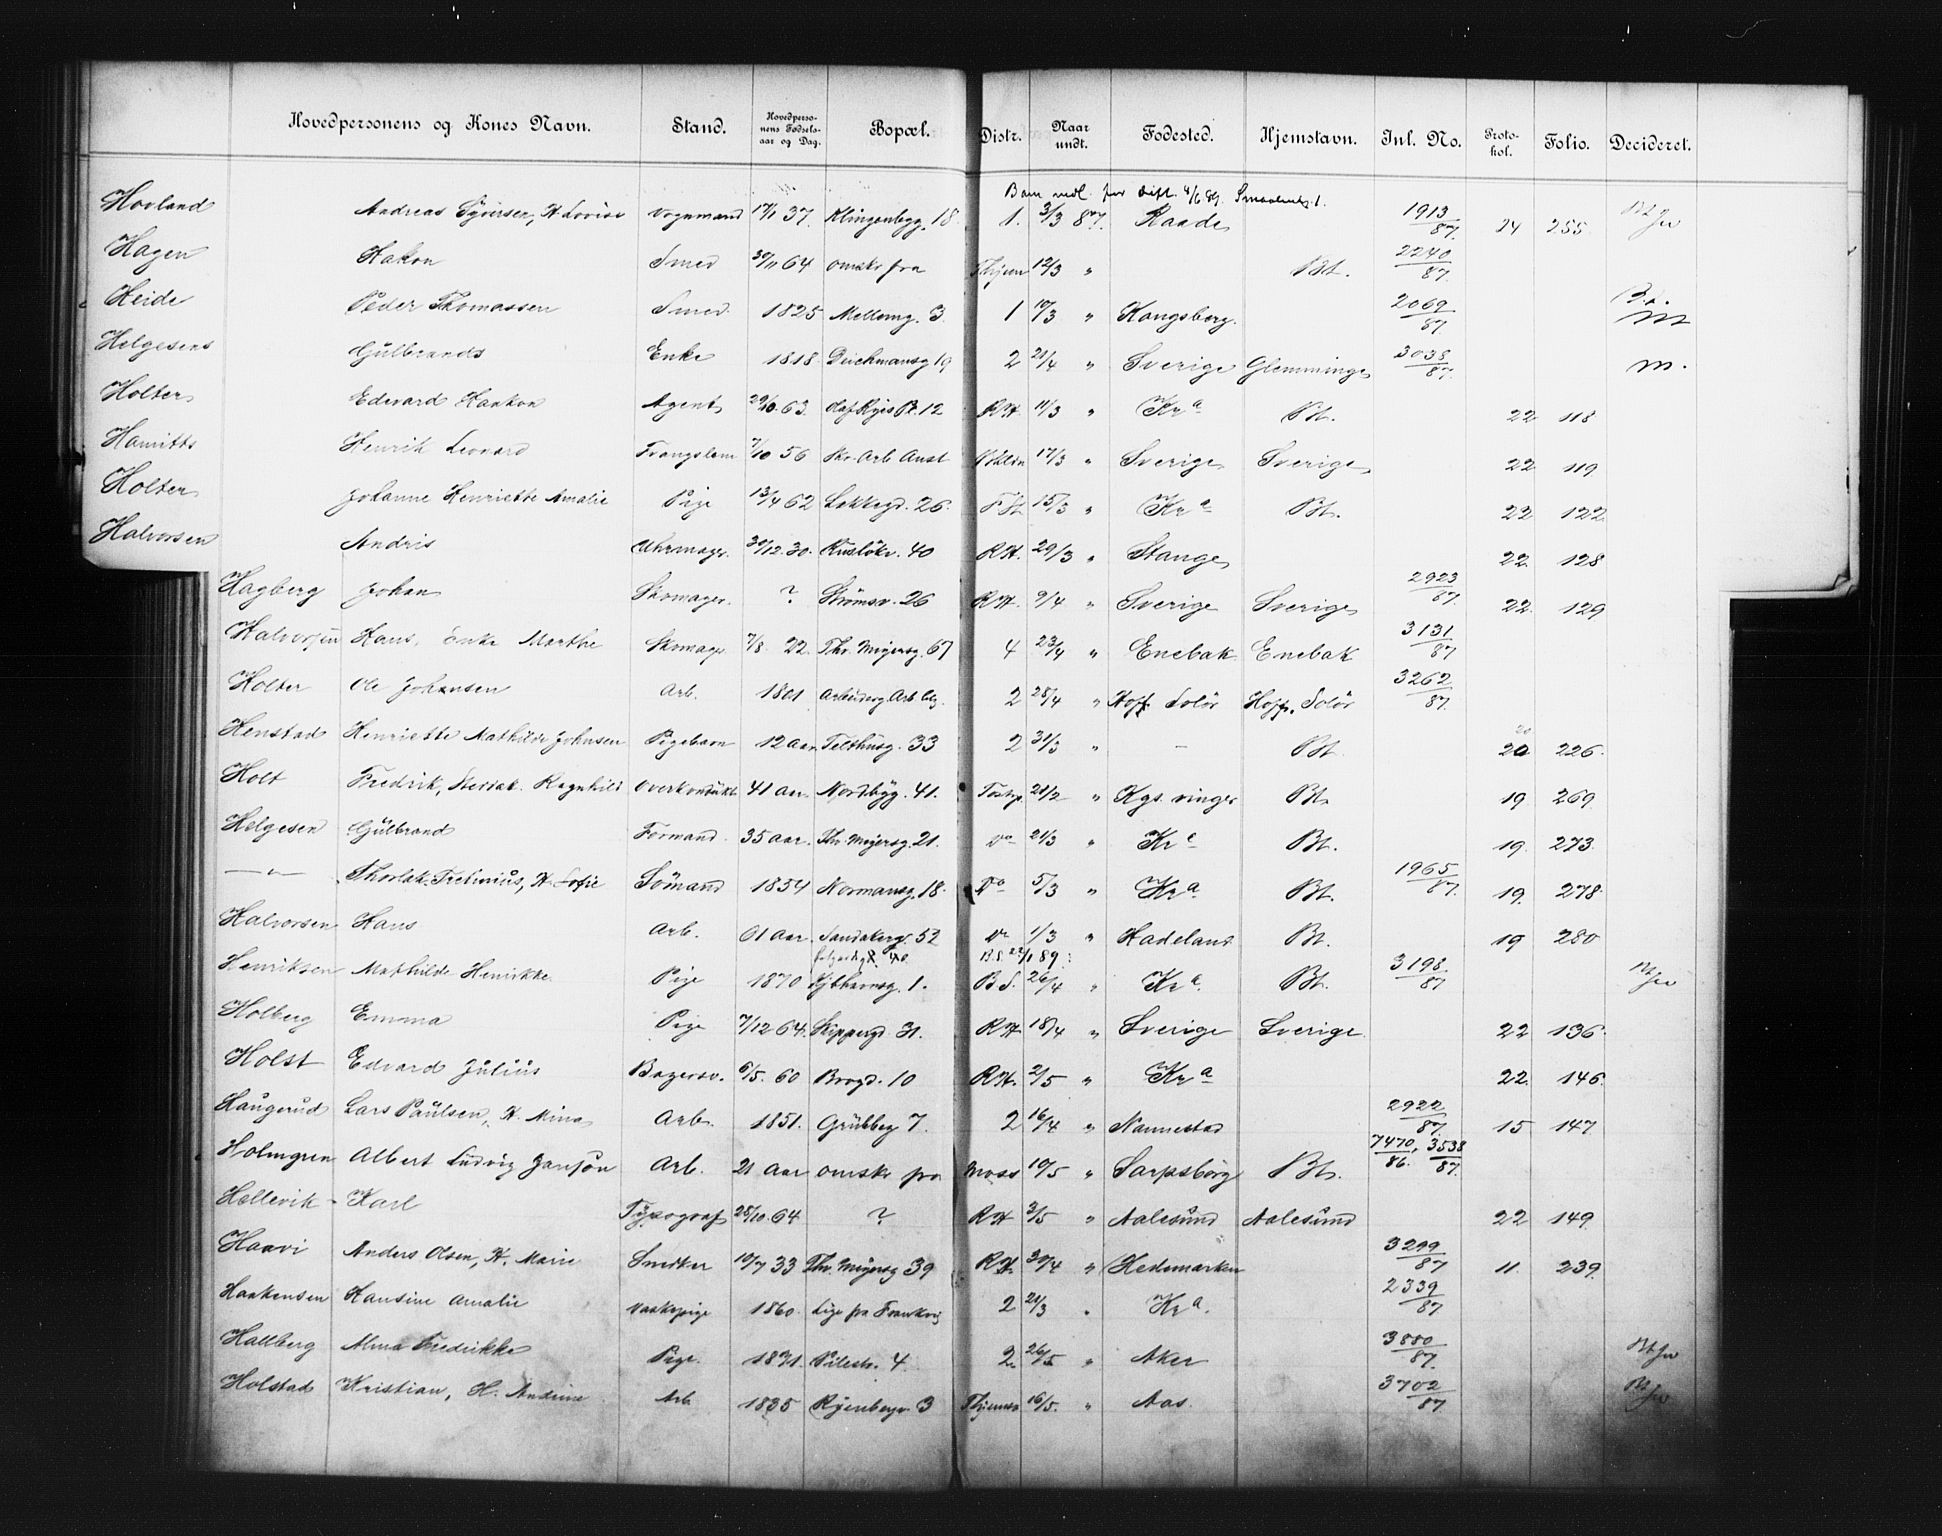 Hovedpersonens og Kones Navn. Stand. Hovedpersonens Fødselsaar og Dag. Bopæl. Distr. Naar undt. Fødested. Hjemstavn. Inl. No. Protokol. Folio. Decideret.
Barn 4/6 89.
Hovland Andreas Syversen, H. Lovise Vognmand 17/1 37. Klingenbgg. 18. 1. 3/3 87. Raade 1913/87. 24 255
Hagen Hakon Smed 30/11 64 omskr fra Thjem 12/3 " Bt. 2240/87.
Heide Peder Thomassen Smed. 1825 Mellemg. 3. 1 10/3 " Kongsberg. 2069/87. m
Helgesens Gülbrands Enke 1818. Deichmansg 19 2 21/4 " Sverige Glemminge 3038/87. m.
Holter Edevard Haakon Agent 29/10. 63. Olaf Ryes Pl. 12 RH. 11/3 " Kra Bt. 22 118
Henrik Leonard 7/10 56 Arb. Anst 17/3 " Sverige Sverige 22 119
Holter Johanne Henriette Amalie Pige 13/4 62 Lakkegd. 26. 15/3 " Kra Bt. 22 122
Halvorsen Andris Uhrmager. 30/12. 30. 40 RH. 29/3 " Stange 22. 128
Hagberg Johan Skomager. ? Strömsv. 26 RH. 9/4 " Sverige Sverige 2923/87. 22. 129
Halvorsen Hans, Enke Marthe Skomager 7/8 22. Thv. Meyersg. 67 4 23/4 " Enebak Enebak 3131/87
Holter Ole Johansen Arb. 1801 2 28/4 " Hoff Solör Hoff, Solör 3262/87.
Henstad Henriette Mathilde Johnsen Pigebarn 12 aar Telthusg. 33 2 31/3 " — Bt. 20 226.
Holt Fredrik, Ragnhild Overkondükt 41 aar. Nordbyg. 41. 21/2 " Kgs. vinger Bt. 19 269
Helgesen Gülbrand Formand. 35 aar. Thv. Meyersg. 21. Do 21/3 " Kra Bt. 19. 273.
— " — H. Sofie Sömand 1854 Normansg. 18. Do 5/3 " Kra. Bt. 1965/87. 19. 278
Halvorsen Hans Arb. 61 aar. Sandakerg. 52 Do 1/3 " Hadeland Bt. 19 280
B.S. 89.
Henriksen Mathilde Henrikke Pige 1870 1. B.S. 26/4 " Kra. Bt. 3198/87
Holberg Emma Pige 7/12 64. Skippergd 31. RH 18/4 " Sverige Sverige. 22 136.
Holst Edvard Jülius Bagersv. 6/5. 60 Brogd. 10 RH. 2/5 " Kra 22. 146.
Haugerud Lars Paülsen, H. Mina Arb. 1851. Grübbeg 7. 2 16/4 " Nannestad 2922/87. 15 147.
Holmgren Albert Ludvig Jansøn Arb. 21 aar omskr fra Moss 10/5 " Sarpsborg Bt. 7470/86., 3538/87.
Hellevik Karl Typograf 28/10. 64 ? RH 3/5 " Aalesünd Aalesünd 22 149.
Haavi Anders Olsen, H. Marie Snedker 10/7 33 Thv. Meyersg 39 RH. 30/4 " Hedemarken 3299/87 11. 239.
Haakensen Hansine Amalie Vaskepige 1860. 2 21/3 " Kra. 2339/87
Hallberg Alma Fredrikke Pige. 1871. Pilestr. 4 2 26/5 " Aker 3880/87.
Holstad Kristian, H. Andrine Arb 1835 Ryenbergv. 3 16/5. " Aas. 3702/87.